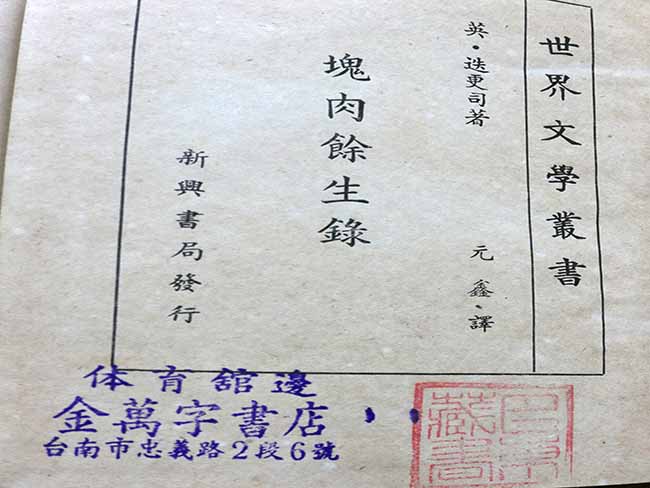 世界文學叢書
英·迭更司著
元鑫·譯
塊肉餘生錄
新興書局發行
体育舘邊
金萬字書店
台南市忠義路2段6號
藏書